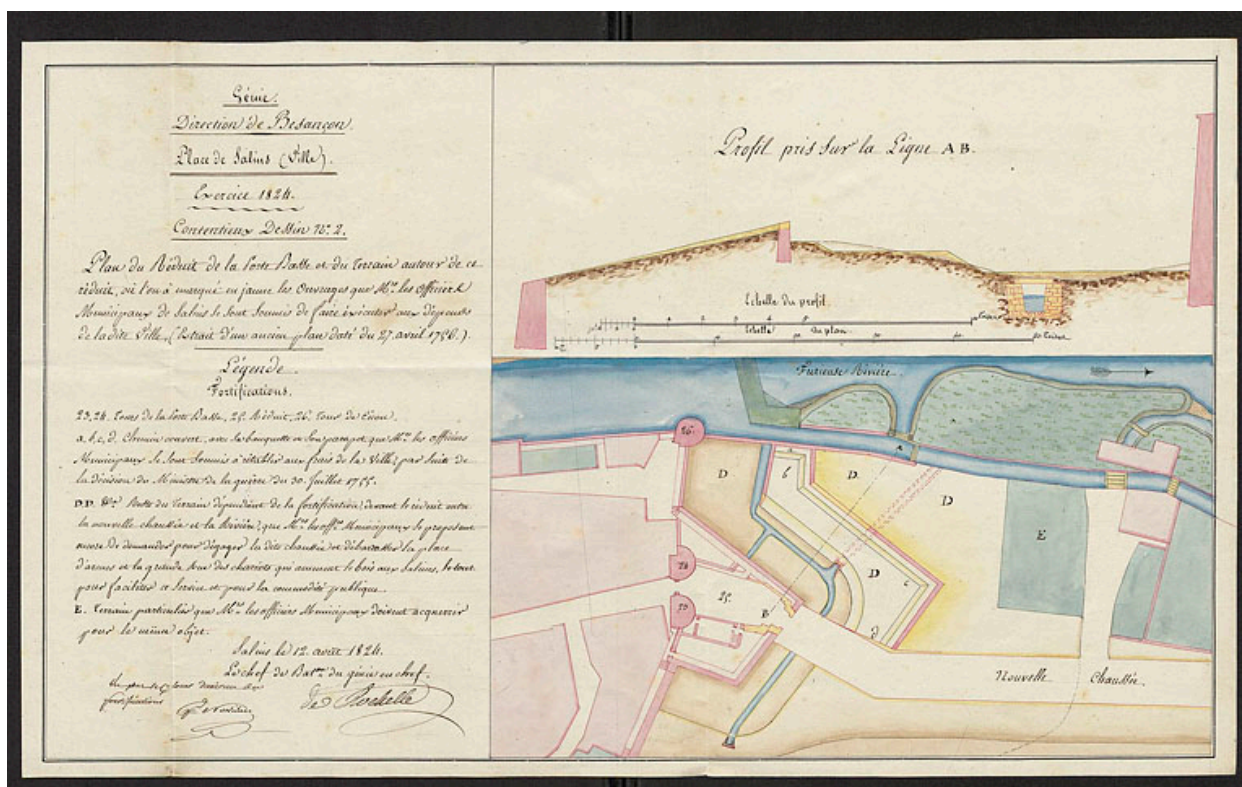 Génie.
Direction de Besançon.
Place de Salins (Ville).
Exercice 1824.
Contentieux Dessin N.° 2.
Plan du Réduit de la Porte Basse et du Terrain autour de ce
réduit, où l'on a marqué en jaune les Ouvrages que M.rs les Officiers
Municipaux de Salins se sont soumis de faire exécuter aux dépens
de la dite Ville, (Extrait d'un ancien plan daté du 27 avril 1756.)
Légende.
Fortifications.
23, 24. Tours de la Porte Basse, 25. Réduit, 26. Tour de
a, b, c, d. Chemin couvert, avec la banquette et son parapet que M.rs les officiers
Municipaux se sont soumis à rétablir aux frais de la Ville, par suite de
la décision du Ministre de la guerre du 30. Juillet 1755.
D.D. &.a du Terrain dépendant de la fortification, devant le réduit entre
la nouvelle chaussée et la Rivière, que M.rs les off.rs Municipaux se proposent
encore de demander pour dégager la dite chaussée et débarrasser la place
d'armes et la grande des chariots qui amènent le bois aux Salines, le tout
pour faciliter ce Service et pour la commodité publique.
E. Terrain particulier que M.rs les officiers Municipaux doivent acquérir
pour le même objet.
Salins le 12. avril 1824.
Le chef de Bat.on du génie en chef.
De Rochelle
fortifications
Profil pris sur la Ligne A B.
Echelle du profil.
Echelle du plan.
Furieuse Rivière.
26.
A
D
b
D
D
E
24
23
25.
B
D
c
d
Nouvelle Chaussée.